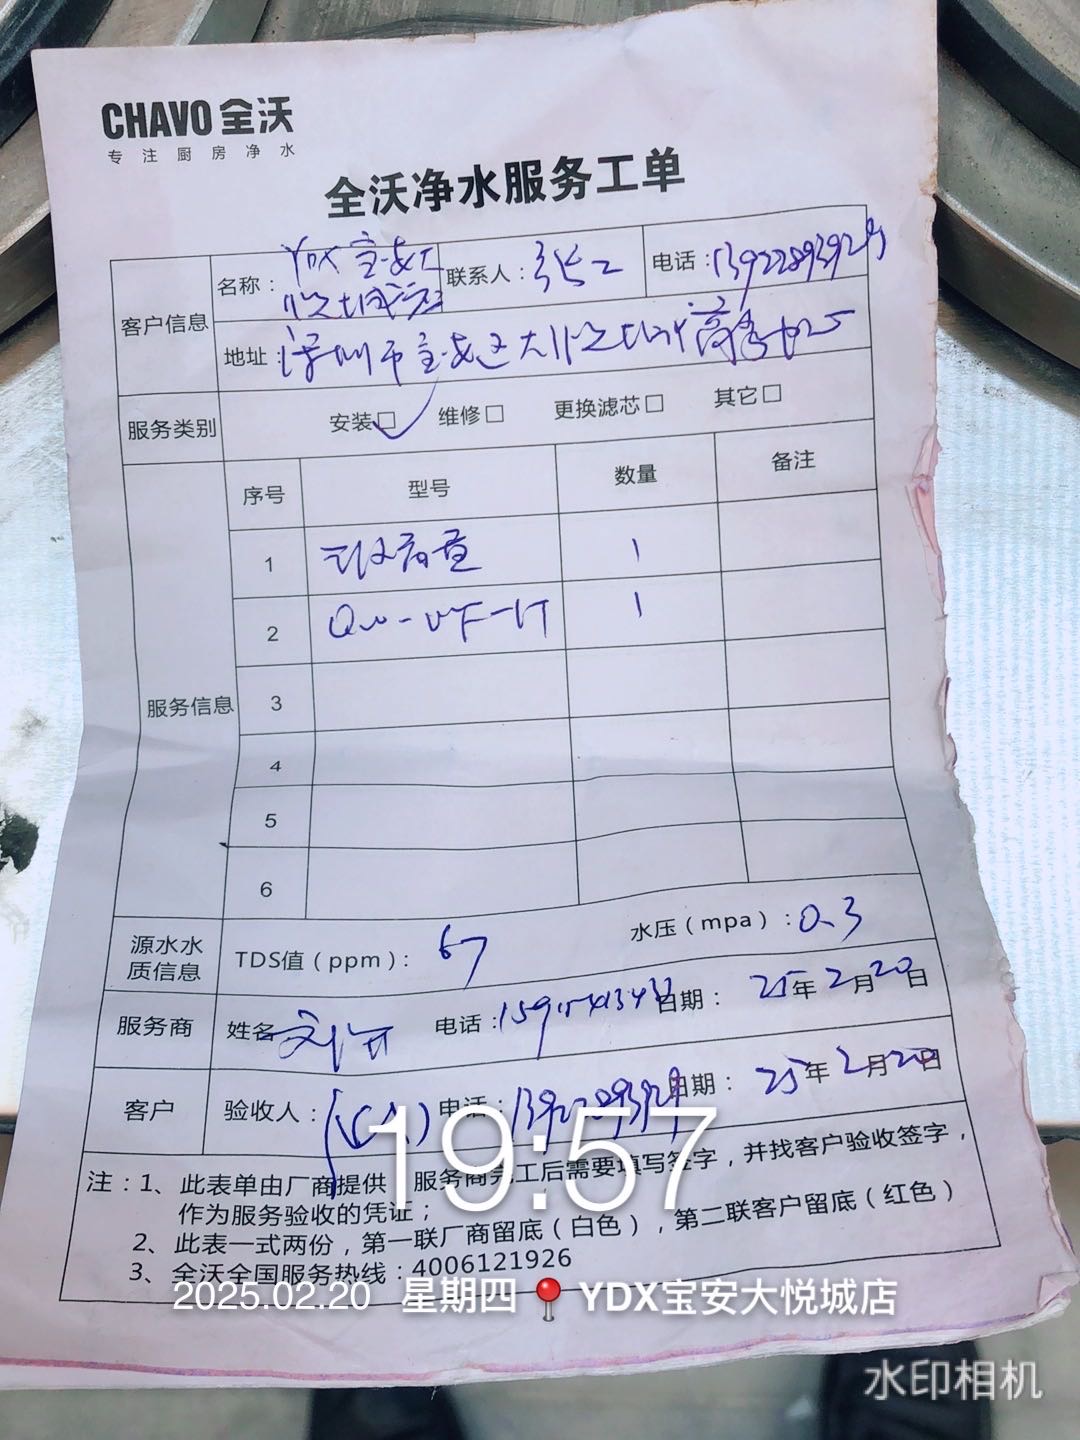 CHAVO 全沃
专注厨房净水
全沃净水服务工单
客户信息
名称：YDX宝安大悦城店
联系人：张工
电话：13922893929
地址：深圳市宝安区大悦城
服务类别
安装☑ 维修□ 更换滤芯□ 其它□
服务信息
序号 型号 数量 备注
1 1
2 QW-UF-1T 1
3
4
5
6
源水水质信息
TDS值（ppm）：67 水压（mpa）：0.3
服务商 姓名 电话： 日期：25年2月20日
客户 验收人： 电话： 日期：25年2月20日
注：1、此表单由厂商提供，服务商完工后需要填写签字，并找客户验收签字，
作为服务验收的凭证；
2、此表一式两份，第一联厂商留底（白色），第二联客户留底（红色）
3、全沃全国服务热线：4006121926
19:57
2025.02.20 星期四 YDX宝安大悦城店
水印相机